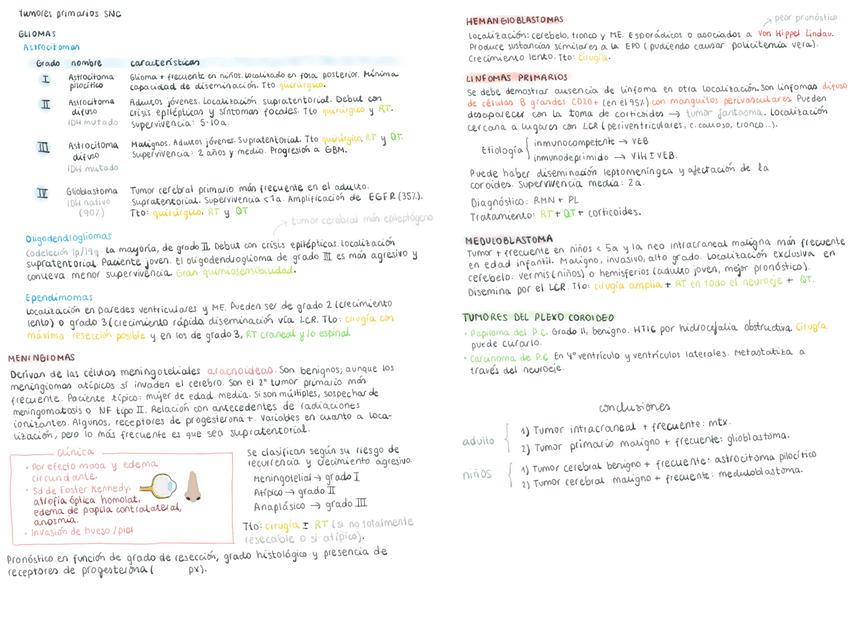 tumores primarios SNC
GLIOMAS
Astrocitomas
Grado nombre características
I Astrocitoma pilocítico Glioma + frecuente en niños. Localizado en fosa posterior. Mínima capacidad de diseminación. Tto quirúrgico.
II Astrocitoma difuso IDH mutado Adultos jóvenes. Localización supratentorial. Debut con crisis epilépticas y síntomas focales. Tto quirúrgico y RT. Supervivencia: 5-10a.
III Astrocitoma difuso IDH mutado Malignos. Adultos jóvenes. Supratentorial. Tto quirúrgico, RT y QT. Supervivencia: 2 años y medio. Progresión a GBM.
IV Glioblastoma IDH nativo (90%) Tumor cerebral primario más frecuente en el adulto. Supratentorial. Supervivencia <1a. Amplificación de EGFR (35%). Tto: quirúrgico, RT y QT
→ tumor cerebral más epileptógeno
Oligodendrogliomas
Codeleción 1p/19q. La mayoría, de grado II. Debut con crisis epilépticas. Localización
supratentorial. Paciente joven. El oligodendroglioma de grado III es más agresivo y
conlleva menor supervivencia. Gran quimiosensibilidad.
Ependimomas
Localización en paredes ventriculares y ME. Pueden ser de grado 2 (crecimiento
lento) o grado 3 (crecimiento rápido, diseminación vía LCR. Tto: cirugía con
máxima resección posible y en los de grado 3, RT craneal y/o espinal
MENINGIOMAS
Derivan de las células meningoteliales aracnoideas. Son benignos; aunque los
meningiomas atípicos sí invaden el cerebro. Son el 2º tumor primario más
frecuente. Paciente típico: mujer de edad media. Si son múltiples, sospechar de
meningomatosis o NF tipo II. Relación con antecedentes de radiaciones
ionizantes. Algunos, receptores de progesterona +. Variables en cuanto a loca-
lización, pero lo más frecuente es que sea supratentorial.
clínica
• Por efecto masa y edema
circundante.
• Sd de Foster Kennedy:
atrofia óptica homolat,
edema de papila contralateral,
anosmia.
• Invasión de hueso/piel
Se clasifican según su riesgo de
recurrencia y crecimiento agresivo.
Meningotelial → grado I
Atípico → grado II
Anaplásico → grado III
Tto: cirugía ± RT (si no totalmente
resecable o si atípico).
Pronóstico en función de grado de resección, grado histológico y presencia de
receptores de progesterona ( px).
HEMANGIOBLASTOMAS
→ peor pronóstico
Localización: cerebelo, tronco y ME. Esporádicos o asociados a Von Hippel Lindau.
Produce sustancias similares a la EPO (pudiendo causar policitemia vera).
Crecimiento lento. Tto: cirugía.
LINFOMAS PRIMARIOS
Se debe demostrar ausencia de linfoma en otra localización. Son linfomas difuso
de células B grandes CD20+ (en el 95%) con manguitos perivasculares. Pueden
desaparecer con la toma de corticoides → tumor fantasma. Localización
cercana a lugares con LCR (periventriculares, c. calloso, tronco...).
Etiología { inmunocompetente → VEB
inmunodeprimido → VIH ± VEB.
Puede haber diseminación leptomeníngea y afectación de la
coroides. Supervivencia media: 2a.
Diagnóstico: RMN + PL
Tratamiento: RT + QT + corticoides.
MEDULOBLASTOMA
Tumor + frecuente en niños < 5a y la neo intracraneal maligna más frecuente
en edad infantil. Maligno, invasivo, alto grado. Localización exclusiva en
cerebelo: vermis (niños) o hemisferios (adulto joven, mejor pronóstico).
Disemina por el LCR. Tto: cirugía amplia + RT en todo el neuroeje + QT.
TUMORES DEL PLEXO COROIDEO
• Papiloma del P.C. Grado II, benigno. HTIC por hidrocefalia obstructiva. Cirugía
puede curarlo.
• Carcinoma de P.C. En 4º ventrículo y ventrículos laterales. Metastatiza a
través del neuroeje.
conclusiones
adulto { 1) Tumor intracraneal + frecuente: mtx.
2) Tumor primario maligno + frecuente: glioblastoma.
niños { 1) Tumor cerebral benigno + frecuente: astrocitoma pilocítico
2) Tumor cerebral maligno + frecuente: meduloblastoma.